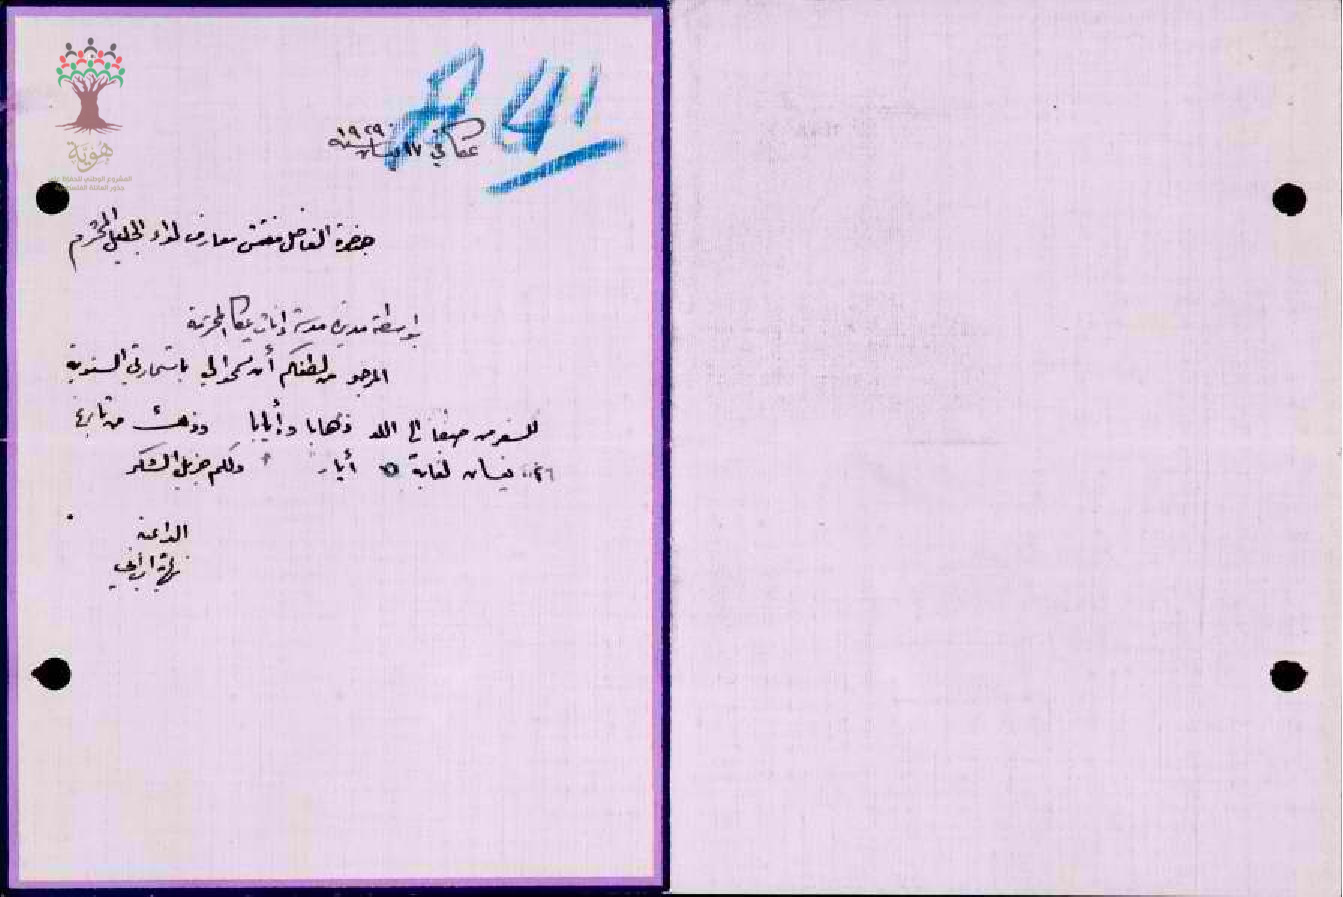 هوية
المشروع الوطني للحفاظ على
جذور العائلة الفلسطينية
عكا في ١٧ نيسان سنة ١٩٢٩
حضرة الفاضل مفتش معارف لواء الجليل المحترم
بواسطة مديرة مدرسة إناث عكا المحترمة
المرجو من لطفكم أن تسمحوا لي باستمارتي السنوية
للسفر من حيفا الى اللد ذهابا وأيابا وذلك من تاريخ
٢٦ نيسان لغاية ٥ أيار ولكم جزيل الشكر
الداعية